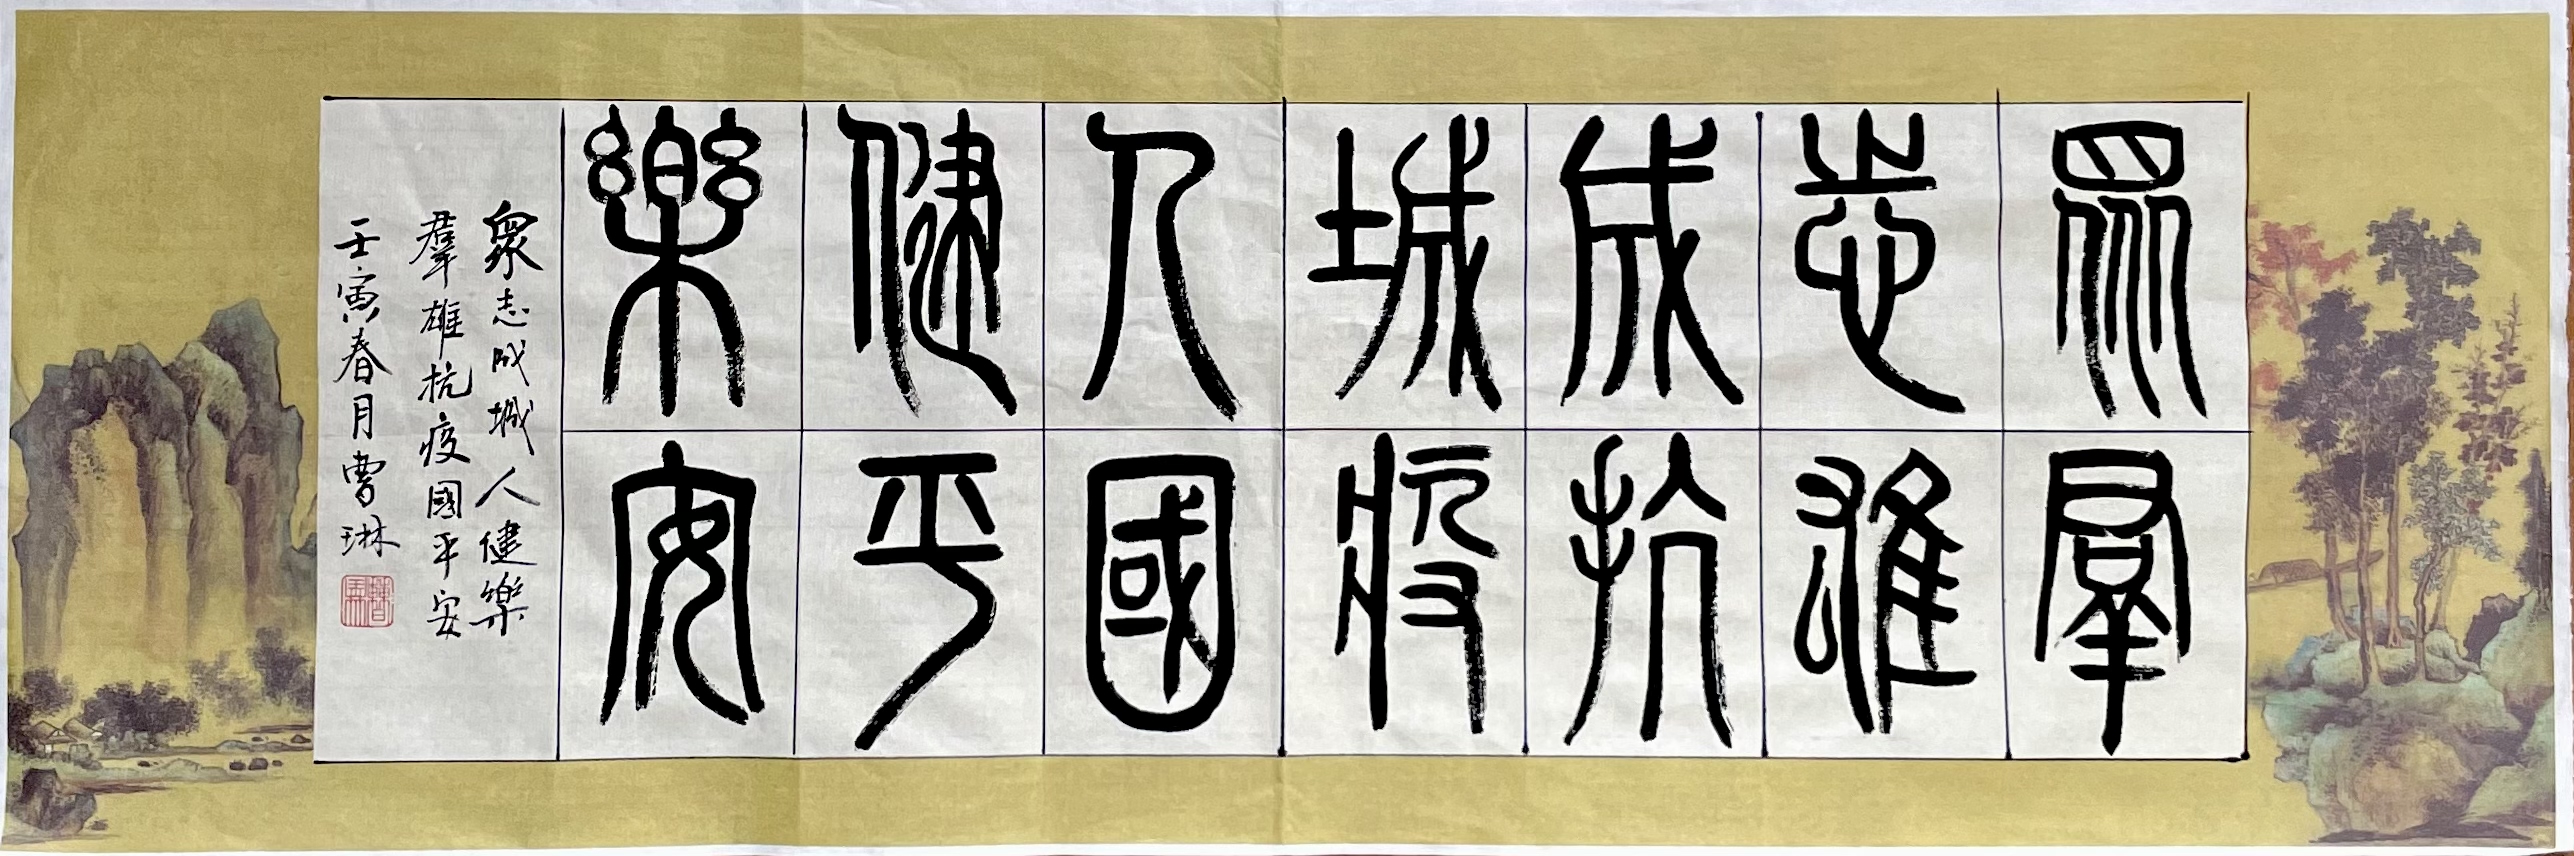 眾志成城人健樂
羣雄抗疫國平安
眾志成城人健樂
羣雄抗疫國平安
壬寅春月曹琳